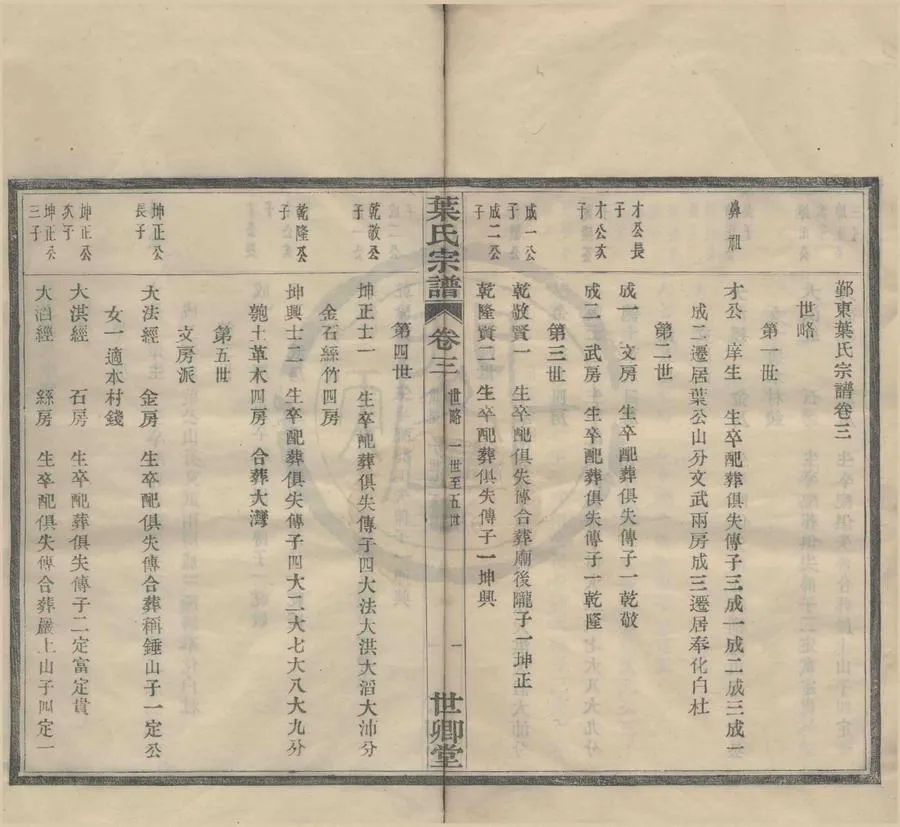 鄞東葉氏宗譜卷三
世略
第一世
鼻祖
才公 庠生 生卒配葬俱失傳子三成一成二成三成一
成二遷居葉公山分文武兩房成三遷居奉化白杜
第二世
才公長子
成一 文房 生卒配葬俱失傳子一乾敬
才公次子
成二 武房 生卒配葬俱失傳子一乾隆
第三世
成一公子
乾敬賢一 生卒配俱失傳合葬廟後隴子一坤正
成二公子
乾隆賢二 生卒配葬俱失傳子一坤興
葉氏宗譜 卷三 世略 一世至五世 一 世卿堂
第四世
乾敬公子
坤正士一 生卒配葬俱失傳子四大法大洪大滔大沛分
金石絲竹四房
乾隆公子
坤興士二 生卒配葬俱失傳子四大三大七大八大九分
匏土革木四房 合葬大灣
第五世
文房派
坤正公長子
大法經 金房 生卒配俱失傳合葬稱錘山子一定公
女一適本村錢
坤正公次子
大洪經 石房 生卒配葬俱失傳子二定富定貴
坤正公三子
大滔經 絲房 生卒配俱失傳合葬嚴上山子四定一